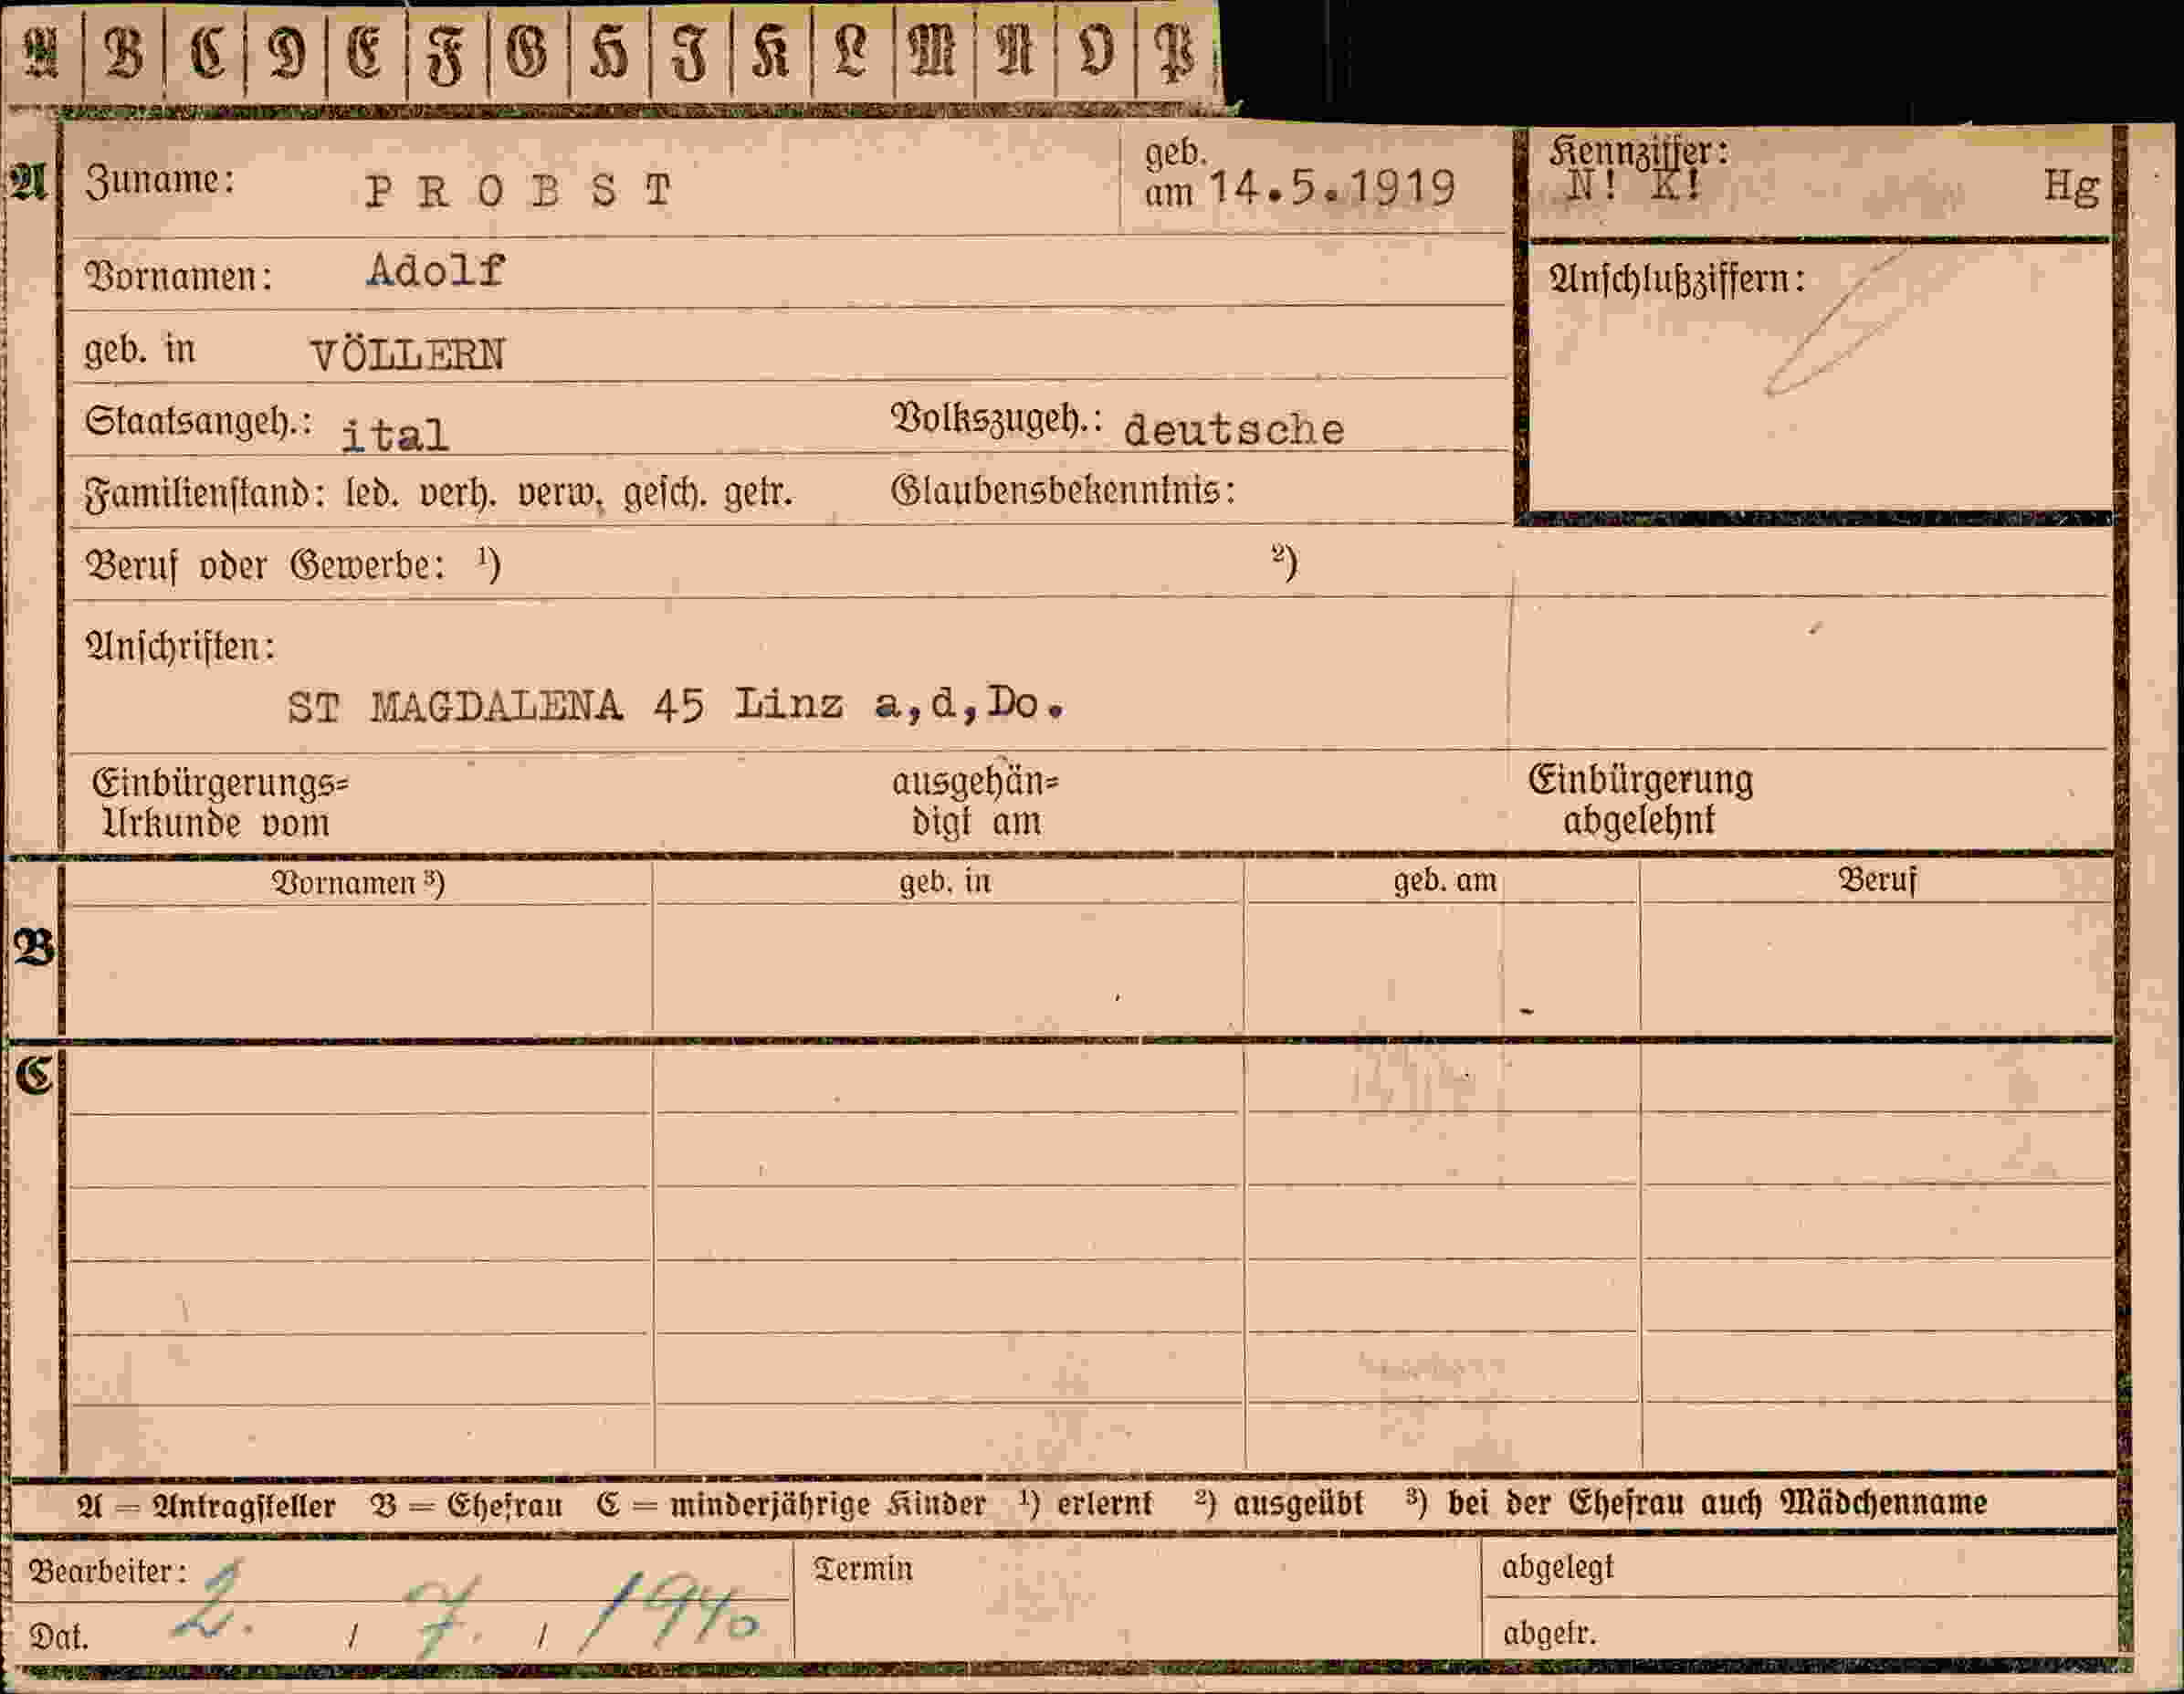 A B C D E F G H I K L M N O P
A Zuname: PROBST geb. am 14.5.1919 Kennziffer: N! K! Hg
Vornamen: Adolf Anschlußziffern:
geb. in VÖLLERN
Staatsangeh.: ital Volkszugeh.: deutsche
Familienstand: led. verh. verw. gesch. getr. Glaubensbekenntnis:
Beruf oder Gewerbe: ¹) ²)
Anschriften:
ST MAGDALENA 45 Linz a,d,Do.
Einbürgerungs= ausgehän= Einbürgerung
Urkunde vom digt am abgelehnt
Vornamen ³) geb. in geb. am Beruf
B
C
A = Antragsteller B = Ehefrau C = minderjährige Kinder ¹) erlernt ²) ausgeübt ³) bei der Ehefrau auch Mädchenname
Bearbeiter: Termin abgelegt
Dat. 2. / 7. / 1940 abgetr.